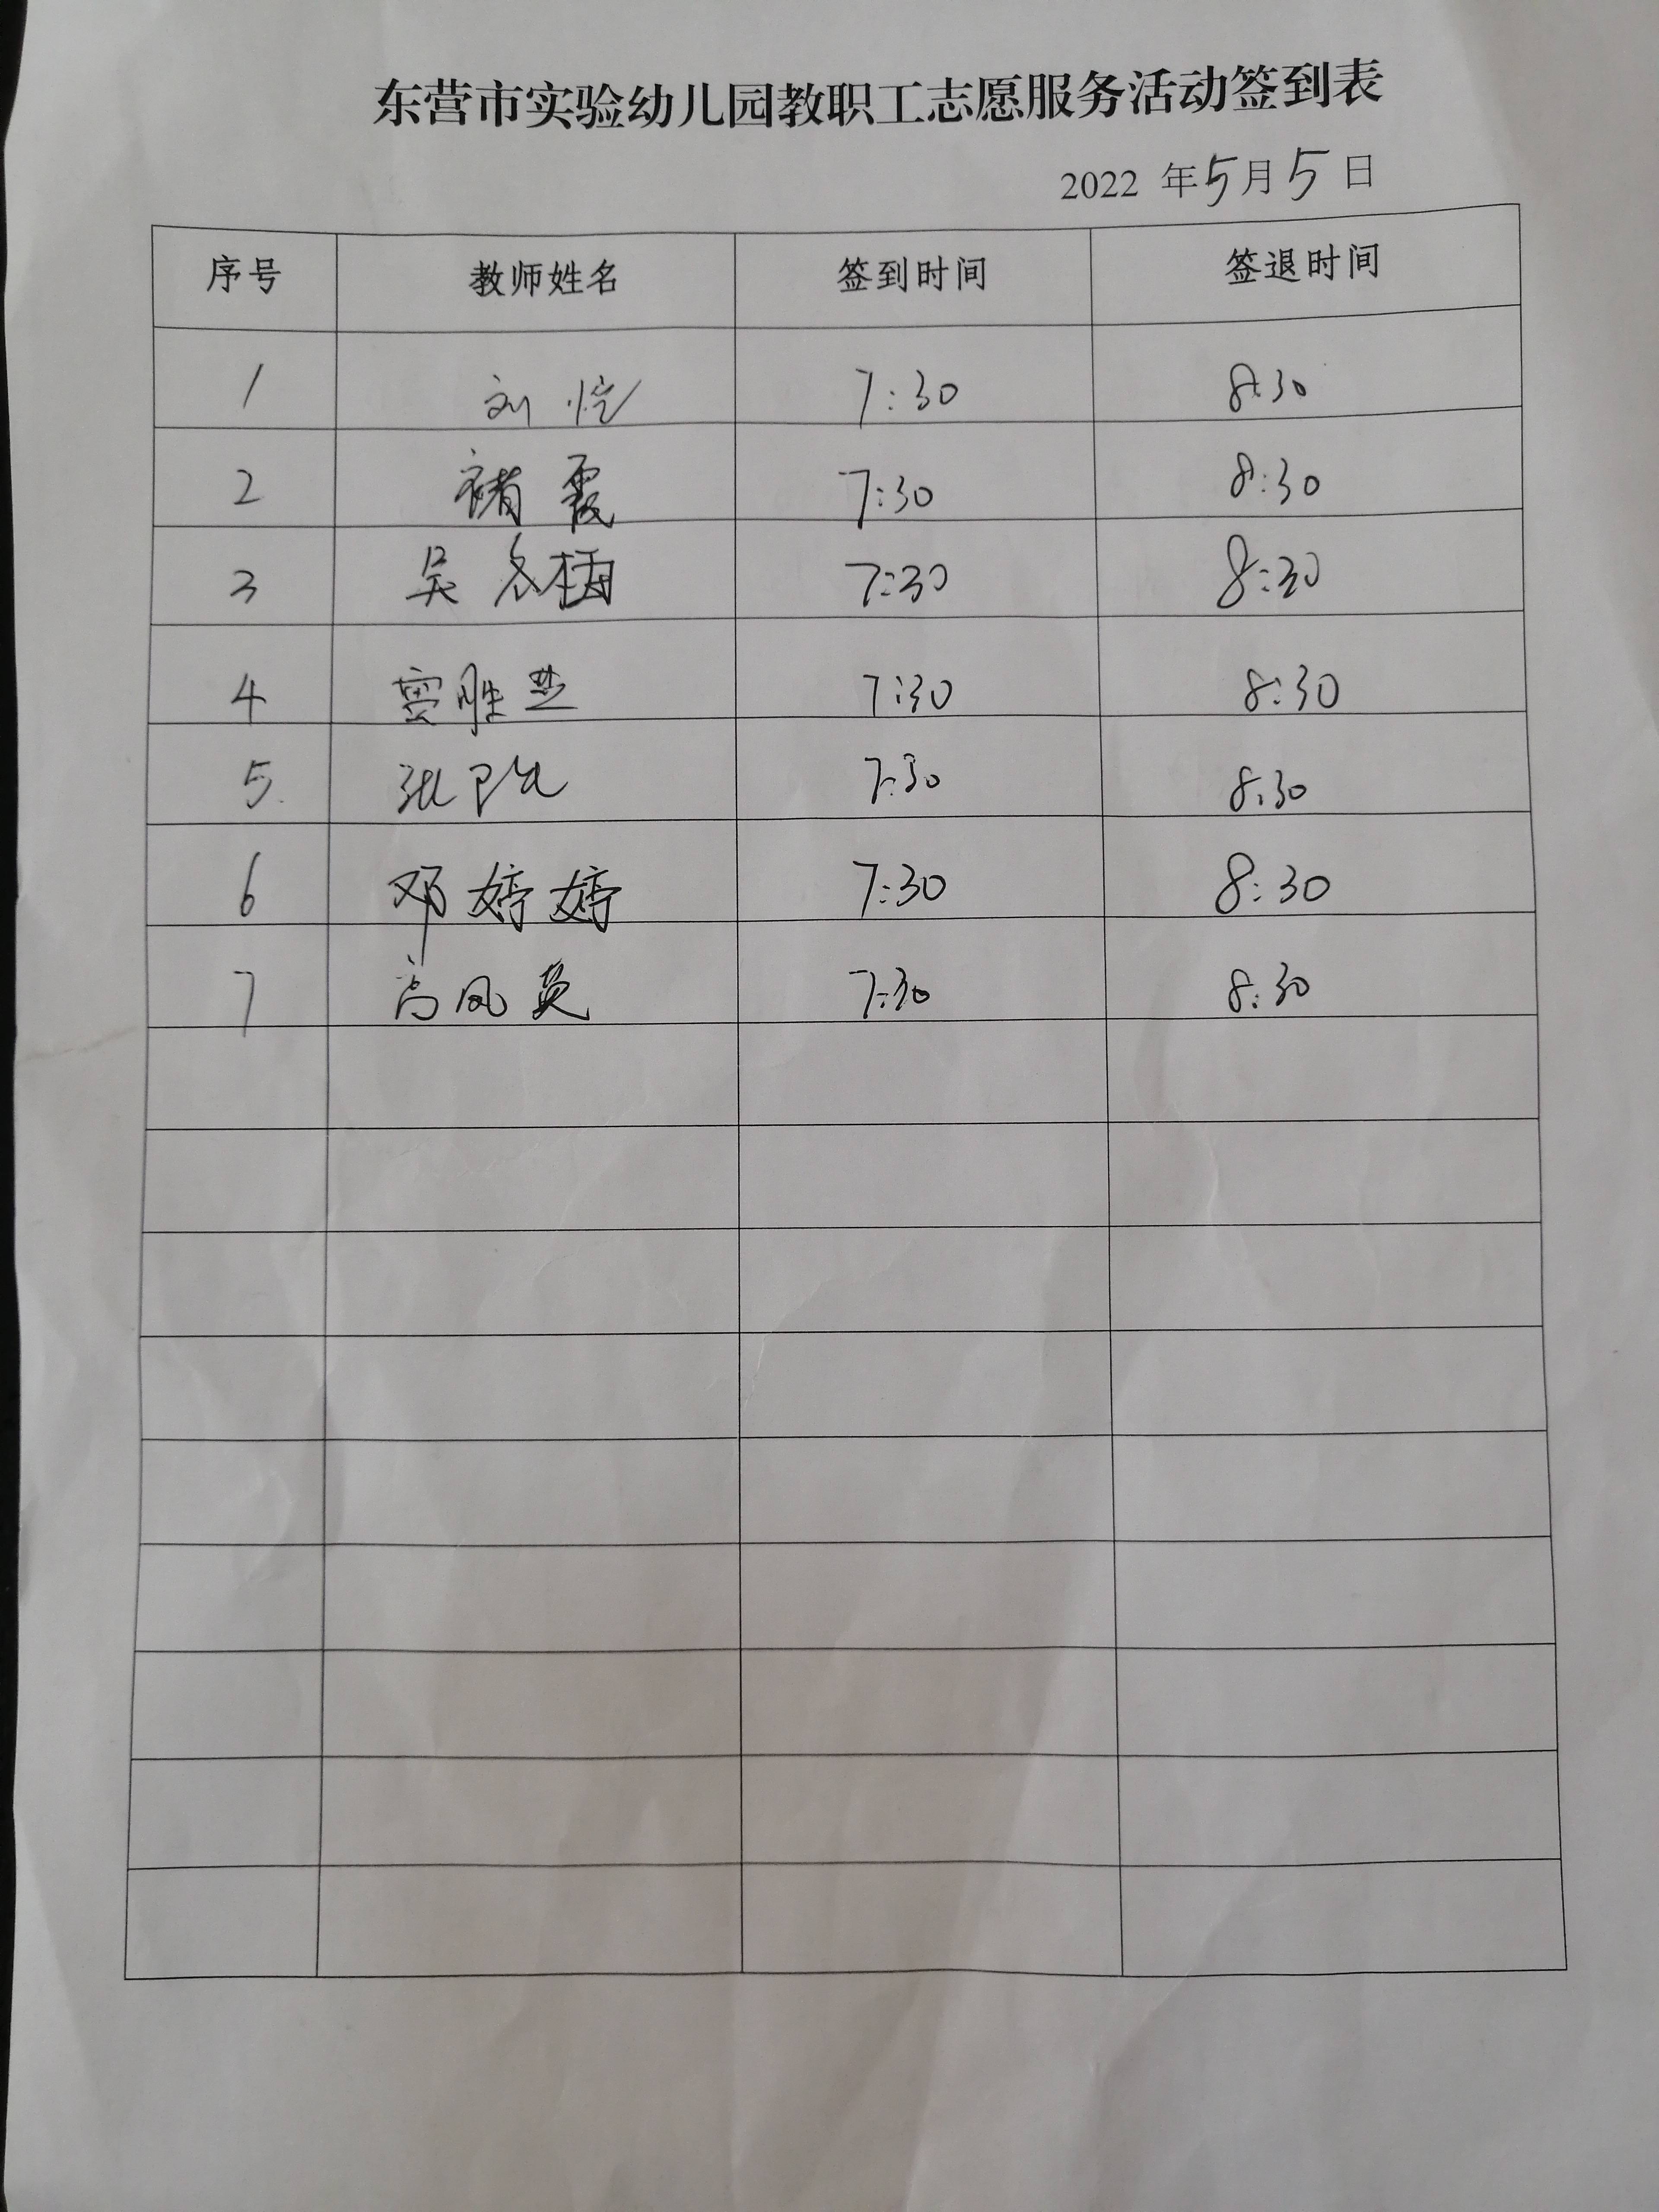 东营市实验幼儿园教职工志愿服务活动签到表
2022 年5月5日
序号 教师姓名 签到时间 签退时间
1 刘 7:30 8:30
2 褚霞 7:30 8:30
3 吴冬梅 7:30 8:30
4 贾胜兰 7:30 8:30
5. 张 7:30 8:30
6 邓婷婷 7:30 8:30
7 尚凤英 7:30 8:30